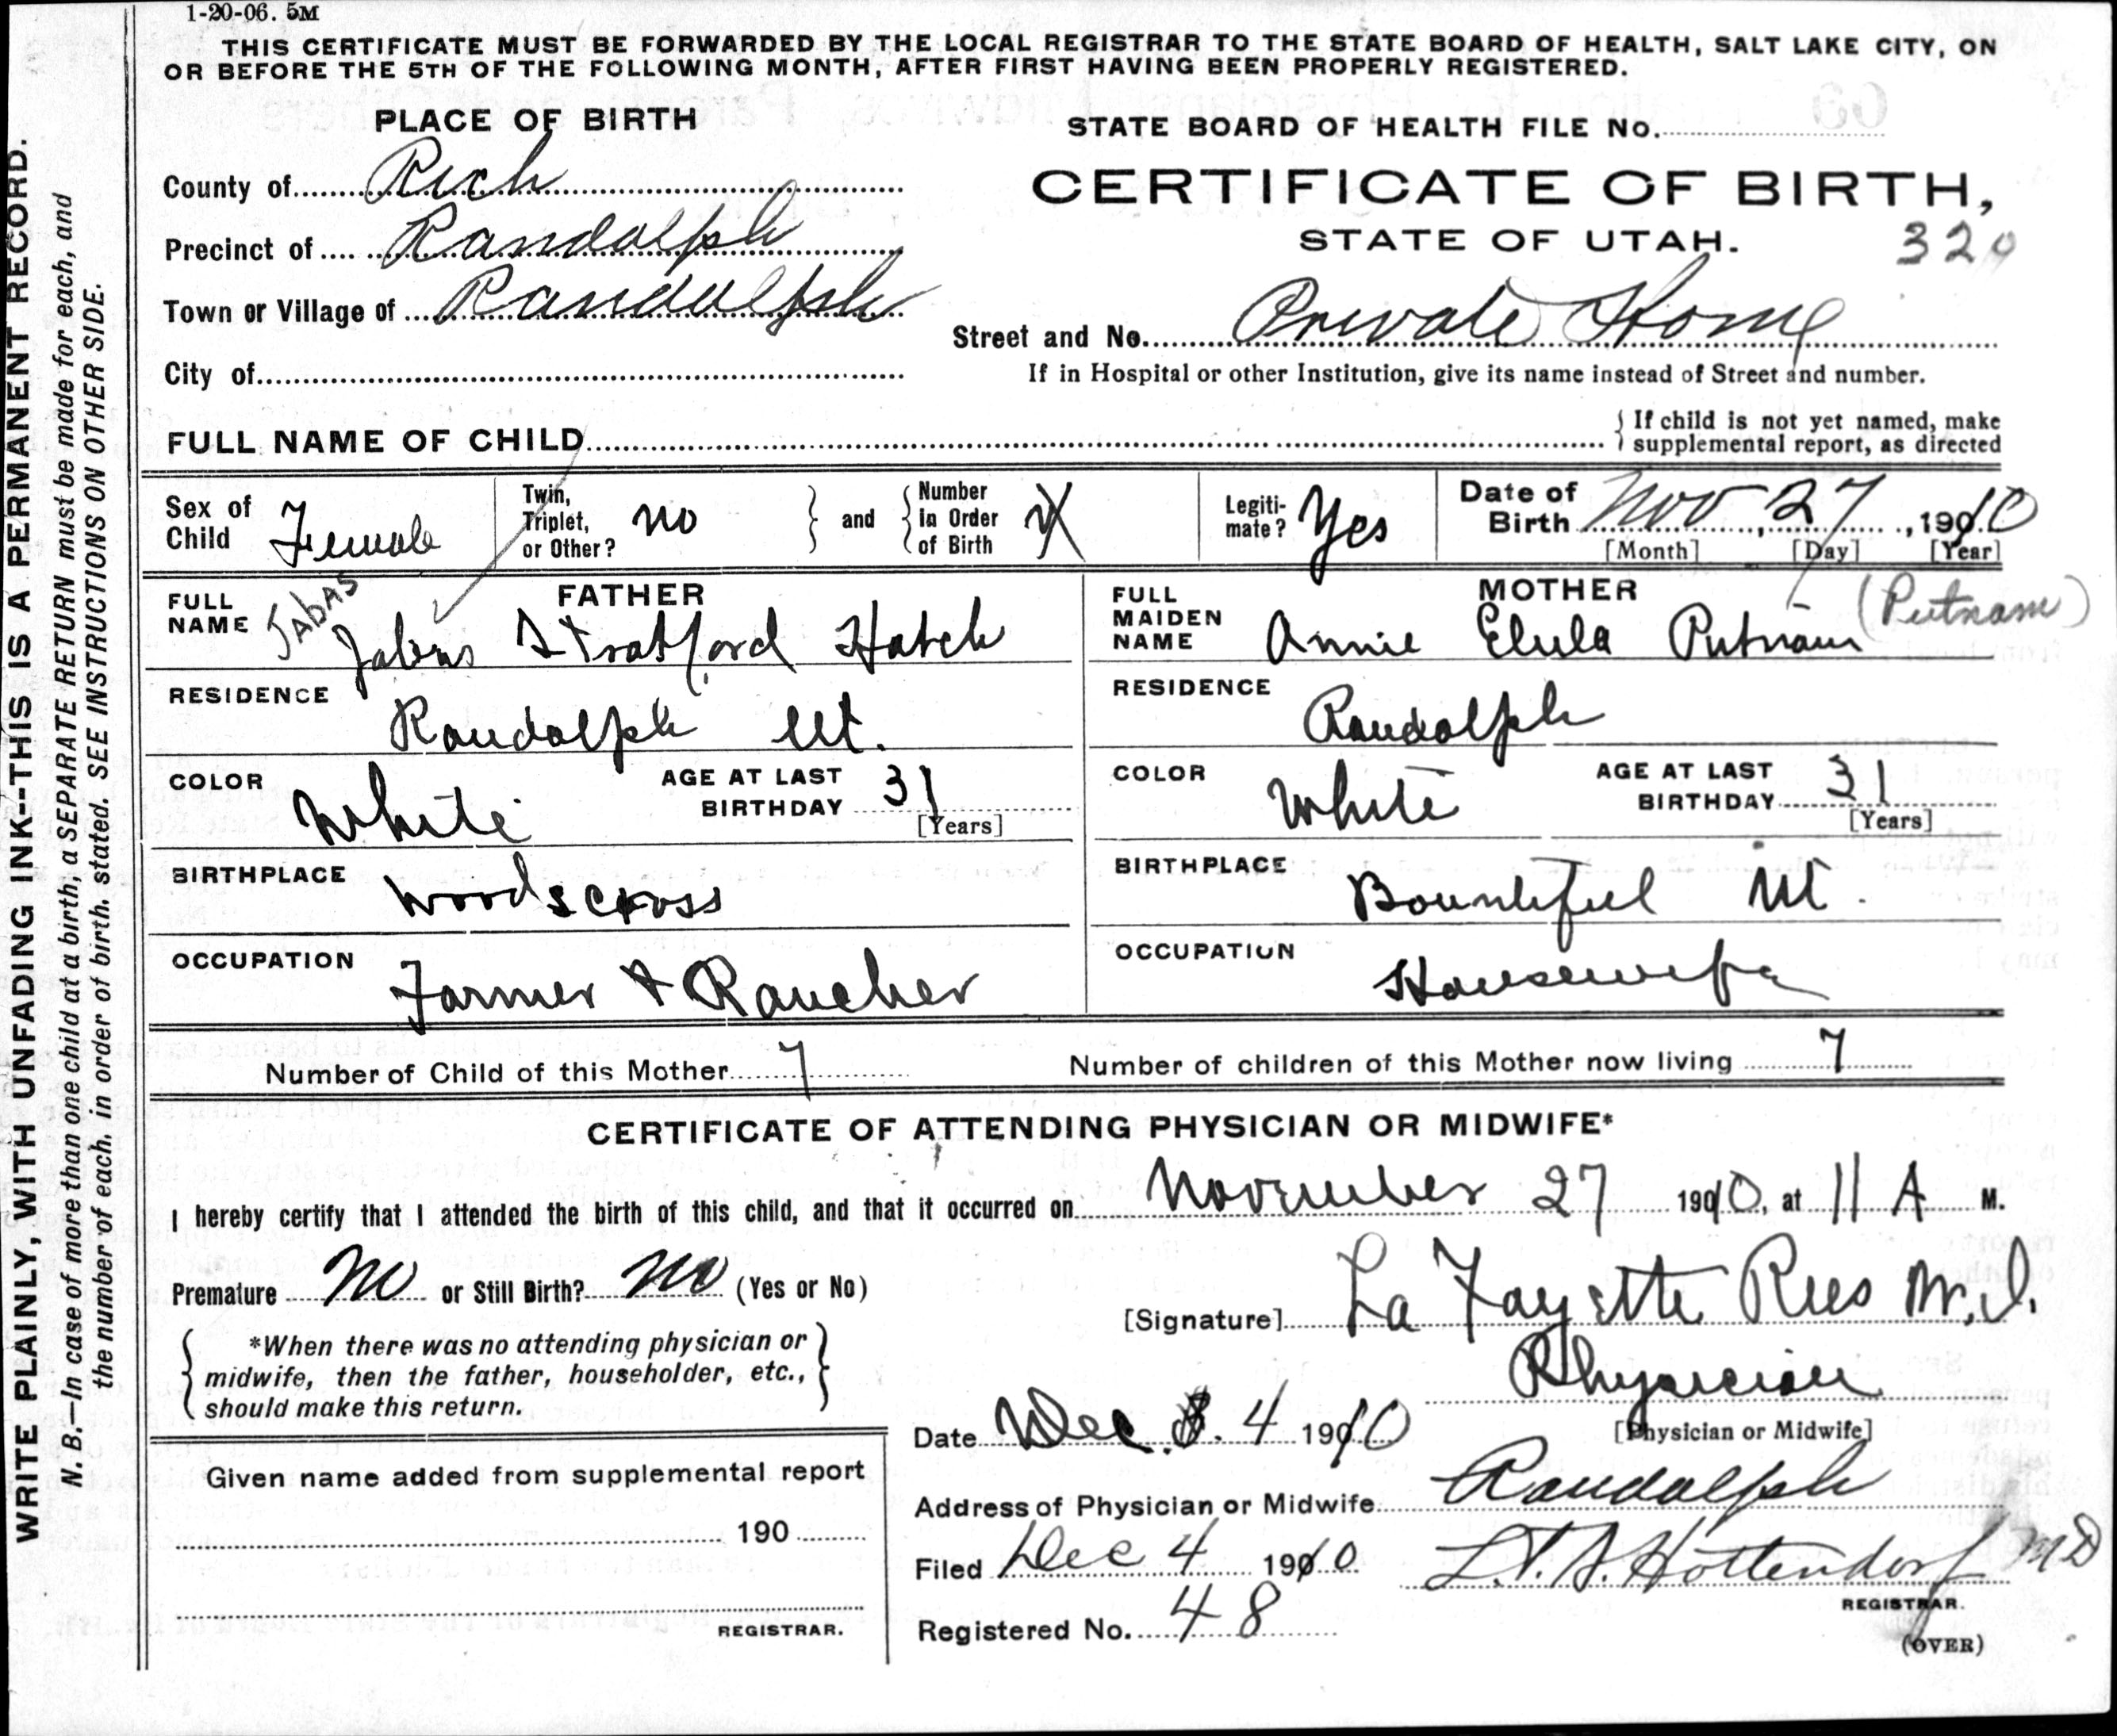 1-20-06. 5M
THIS CERTIFICATE MUST BE FORWARDED BY THE LOCAL REGISTRAR TO THE STATE BOARD OF HEALTH, SALT LAKE CITY, ON
OR BEFORE THE 5TH OF THE FOLLOWING MONTH, AFTER FIRST HAVING BEEN PROPERLY REGISTERED.
WRITE PLAINLY, WITH UNFADING INK--THIS IS A PERMANENT RECORD.
N. B.—In case of more than one child at a birth, a SEPARATE RETURN must be made for each, and
the number of each, in order of birth, stated. SEE INSTRUCTIONS ON OTHER SIDE.
PLACE OF BIRTH
County of Rich
Precinct of Randolph
Town or Village of Randolph
City of
STATE BOARD OF HEALTH FILE No.
CERTIFICATE OF BIRTH,
STATE OF UTAH.
320
Street and No. Private Home
If in Hospital or other Institution, give its name instead of Street and number.
FULL NAME OF CHILD
If child is not yet named, make
supplemental report, as directed
Sex of Child Female
Twin, Triplet, or Other? no
and
Number in Order of Birth X
Legitimate? Yes
Date of Birth Nov 27, 1910
[Month] [Day] [Year]
FATHER
FULL NAME Jabas Stratford Hatch
JAbAS
RESIDENCE
Randolph Ut.
COLOR White
AGE AT LAST BIRTHDAY 31
[Years]
BIRTHPLACE Woodscross
OCCUPATION Farmer & Rancher
MOTHER
FULL MAIDEN NAME Annie Elula Putnam (Putnam)
RESIDENCE
Randolph
COLOR White
AGE AT LAST BIRTHDAY 31
[Years]
BIRTHPLACE Bountiful Ut.
OCCUPATION Housewife
Number of Child of this Mother 7
Number of children of this Mother now living 7
CERTIFICATE OF ATTENDING PHYSICIAN OR MIDWIFE*
I hereby certify that I attended the birth of this child, and that it occurred on November 27 1910, at 11 A M.
Premature No or Still Birth? No (Yes or No)
*When there was no attending physician or
midwife, then the father, householder, etc.,
should make this return.
[Signature] La Fayette Rees M.D.
Physician
[Physician or Midwife]
Date Dec. 4 1910
Address of Physician or Midwife Randolph
Filed Dec 4 1910
Hottendorf MD
REGISTRAR.
Registered No. 48
(OVER)
Given name added from supplemental report
190
REGISTRAR.